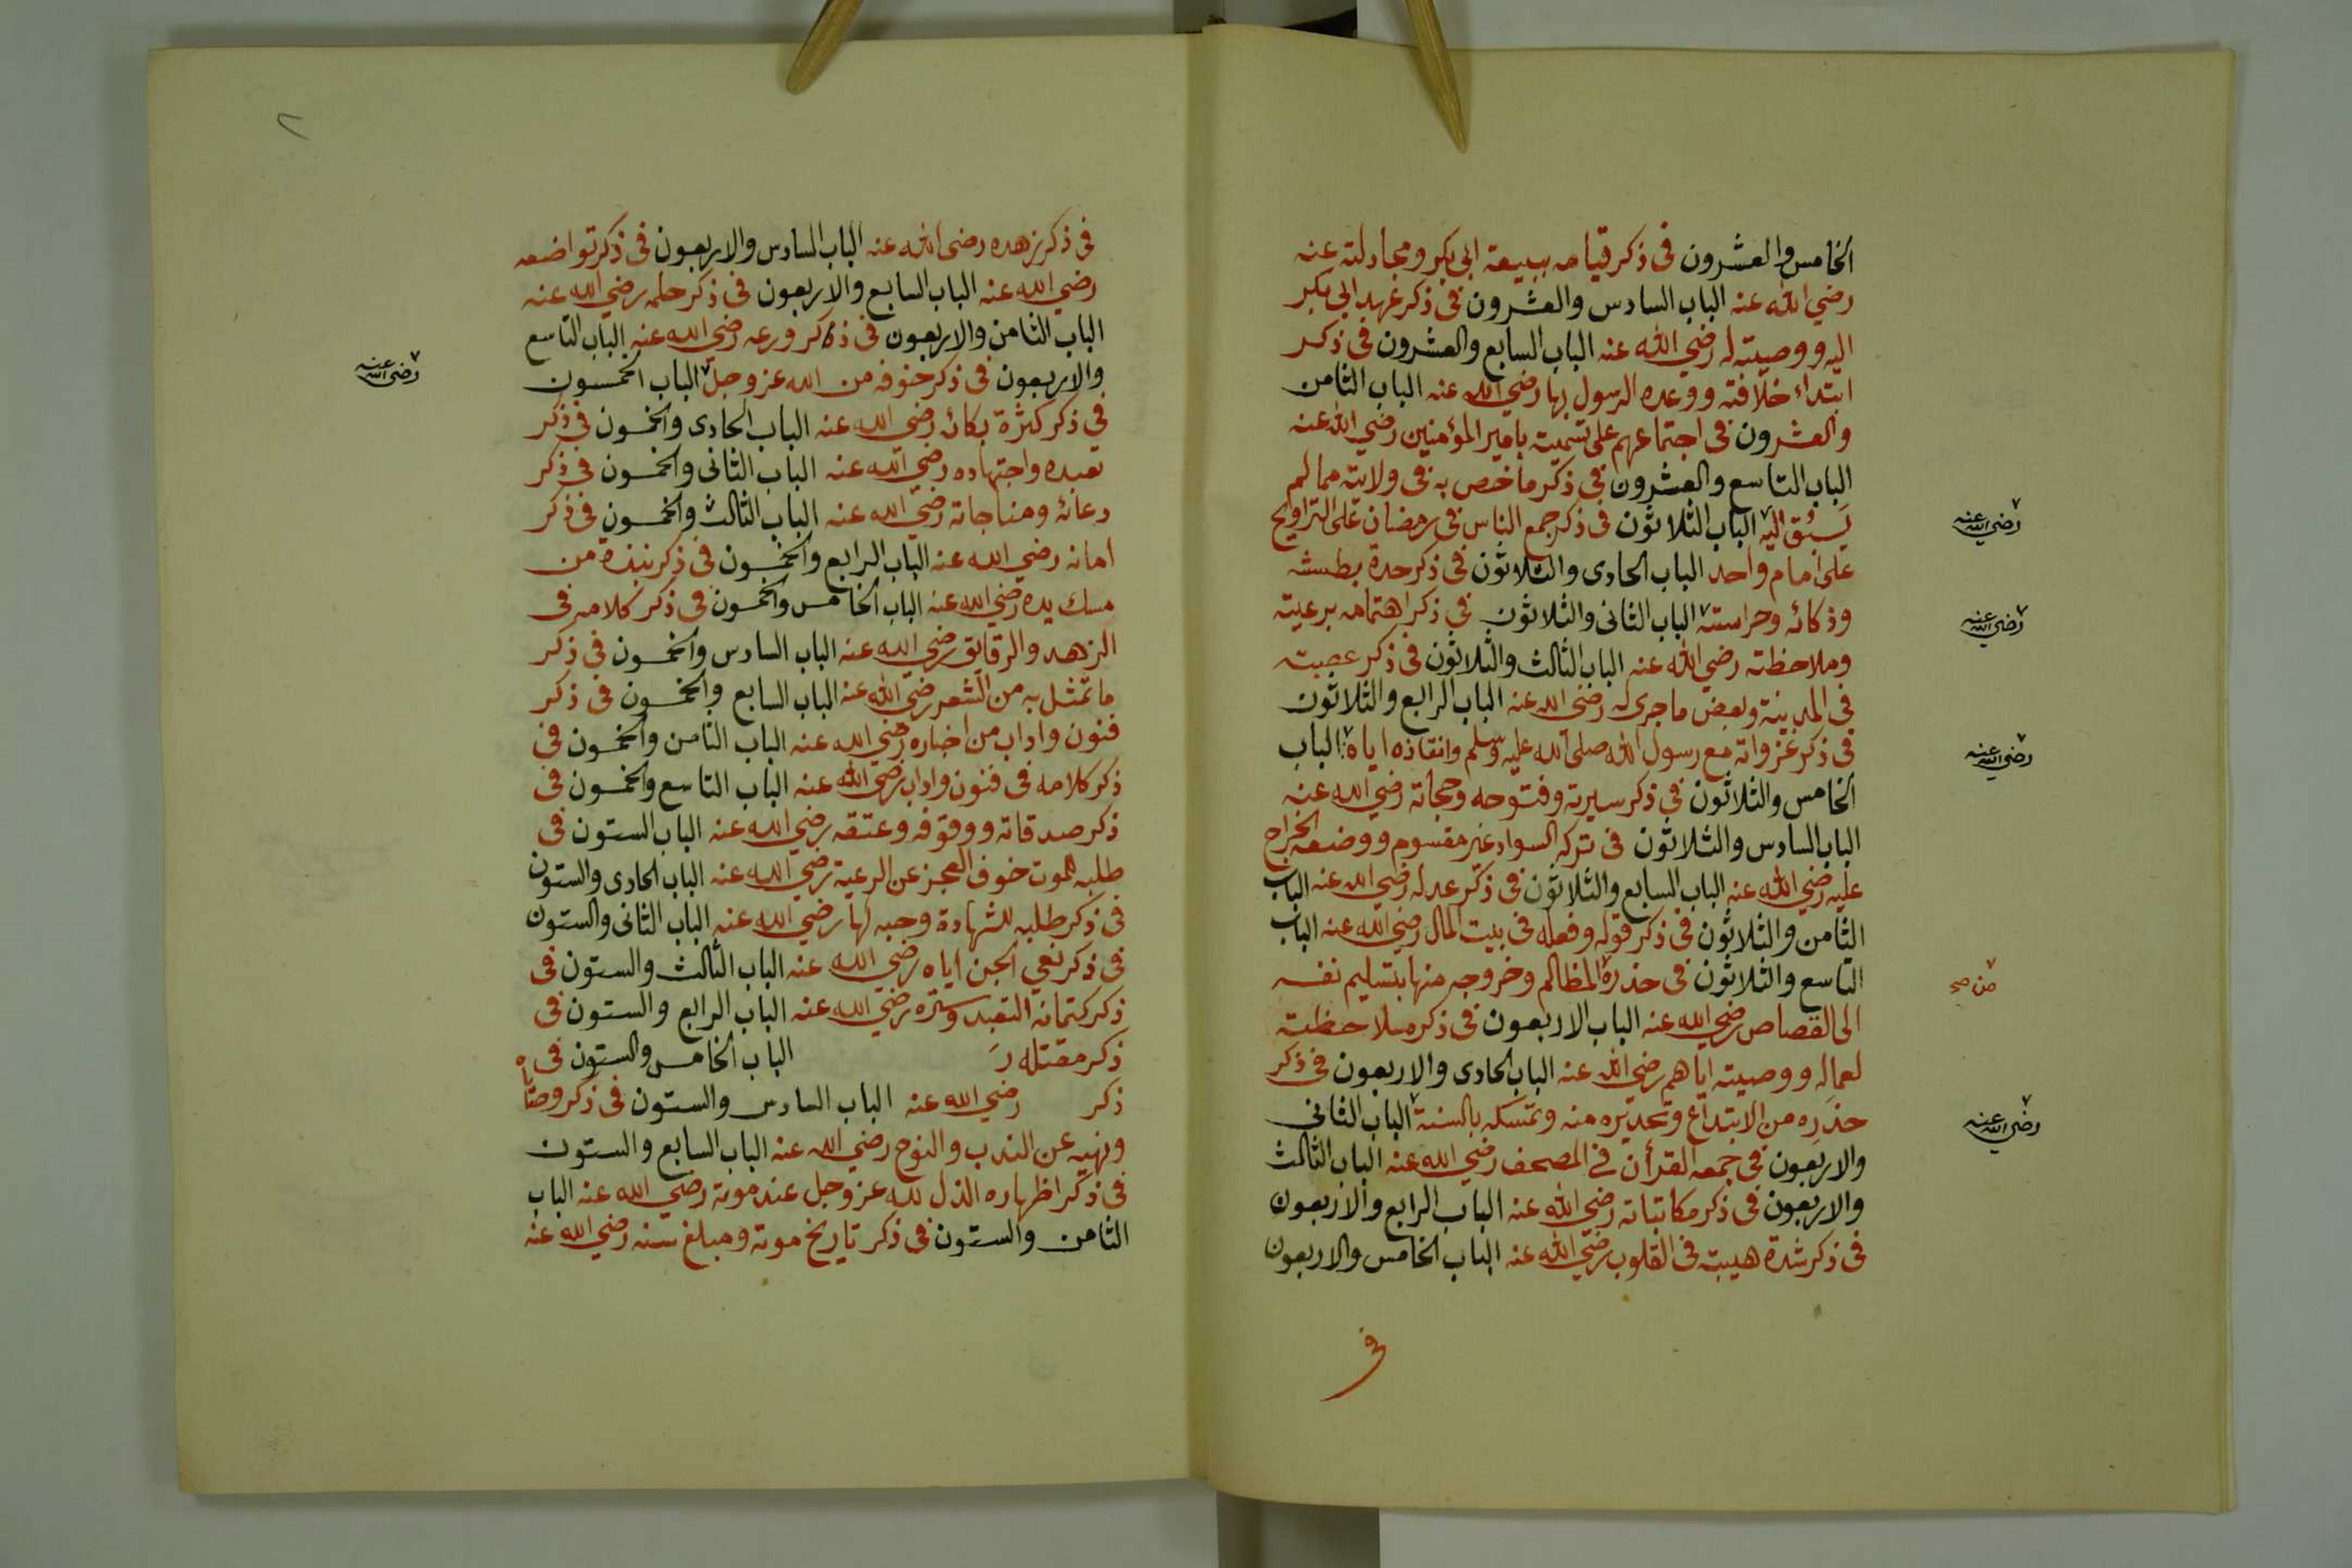 الخامس والعشرون فى ذكر قيامه ببيعة ابى بكر ومجادلته عنه
رضي الله عنه الباب السادس والعشرون فى ذكر عهد ابى بكر
اليه ووصيته له رضي الله عنه الباب السابع والعشرون فى ذكر
ابتداء خلافته ووعده الرسول بها رضي الله عنه الباب الثامن
والعشرون فى اجتماعهم على تسميته بامير المؤمنين رضي الله عنه
الباب التاسع والعشرون فى ذكر ما خص به فى ولايته مما لم
يسبق اليه الباب الثلاثون فى ذكر جمع الناس فى رمضان على التراويح
رضي الله عنه
على امام واحد الباب الحادى والثلاثون فى ذكر حدة بطشه
وذكائه وحراسته الباب الثانى والثلاثون فى ذكر اهتمامه برعيته
رضي الله عنه
وملاحظته رضي الله عنه الباب الثالث والثلاثون فى ذكر عصبته
فى المدينة وبعض ما جرى له رضي الله عنه الباب الرابع والثلاثون
فى ذكر غزواته مع رسول الله صلى الله عليه وسلم وانقاذه اياه الباب
رضي الله عنه
الخامس والثلاثون فى ذكر سيرته وفتوحه وحجاته رضي الله عنه
الباب السادس والثلاثون فى تركه السواد غير مقسوم ووضعه الخراج
عليه رضي الله عنه الباب السابع والثلاثون فى ذكر عدله رضي الله عنه الباب
الثامن والثلاثون فى ذكر قوله وفعله فى بيت المال رضي الله عنه الباب
التاسع والثلاثون فى حذره المظالم وخروجه منها بتسليم نفسه
من صح
الى القصاص رضي الله عنه الباب الاربعون فى ذكر ملاحظته
لعماله ووصيته اياهم رضي الله عنه الباب الحادى والاربعون فى ذكر
حذره من الابتداع وتحذيره منه وتمسكه بالسنة الباب الثانى
رضي الله عنه
والاربعون فى جمعه القرأن فى المصحف رضي الله عنه الباب الثالث
والاربعون فى ذكر مكاتباته رضي الله عنه الباب الرابع والاربعون
فى ذكر شدة هيبته فى القلوب رضي الله عنه الباب الخامس والاربعون
فى
٢
فى ذكر زهده رضى الله عنه الباب السادس والاربعون فى ذكر تواضعه
رضي الله عنه الباب السابع والاربعون فى ذكر حلمه رضي الله عنه
الباب الثامن والاربعون فى ذكر ورعه رضي الله عنه الباب التاسع
والاربعون فى ذكر خوفه من الله عز وجل الباب الخمسون
رضى الله عنه
فى ذكر كثرة بكائه رضي الله عنه الباب الحادى والخمسون فى ذكر
تعبده واجتهاده رضي الله عنه الباب الثانى والخمسون فى ذكر
دعائه ومناجاته رضي الله عنه الباب الثالث والخمسون فى ذكر
امانه رضي الله عنه الباب الرابع والخمسون فى ذكر نبذة من
مسك يده رضي الله عنه الباب الخامس والخمسون فى ذكر كلامه فى
الزهد والرقائق رضي الله عنه الباب السادس والخمسون فى ذكر
ما تمثل به من الشعر رضي الله عنه الباب السابع والخمسون فى ذكر
فنون واداب من اخباره رضي الله عنه الباب الثامن والخمسون فى
ذكر كلامه فى فنون واداب رضي الله عنه الباب التاسع والخمسون فى
ذكر صدقاته ووقوفه وعتقه رضي الله عنه الباب الستون فى
طلبه للموت خوف العجز عن الرعية رضي الله عنه الباب الحادى والستون
فى ذكر طلبه للشهادة وحبه لها رضي الله عنه الباب الثانى والستون
فى ذكر نعي الجن اياه رضي الله عنه الباب الثالث والستون فى
ذكر كتمانه التعبد وستره رضي الله عنه الباب الرابع والستون فى
ذكر مقتله ر الباب الخامس والستون فى
ذكر رضي الله عنه الباب السادس والستون فى ذكر وصاياه
ونهيه عن الندب والنوح رضي الله عنه الباب السابع والستون
فى ذكر اظهاره الذل لله عز وجل عند موته رضي الله عنه الباب
الثامن والستون فى ذكر تاريخ موته ومبلغ سنه رضي الله عنه